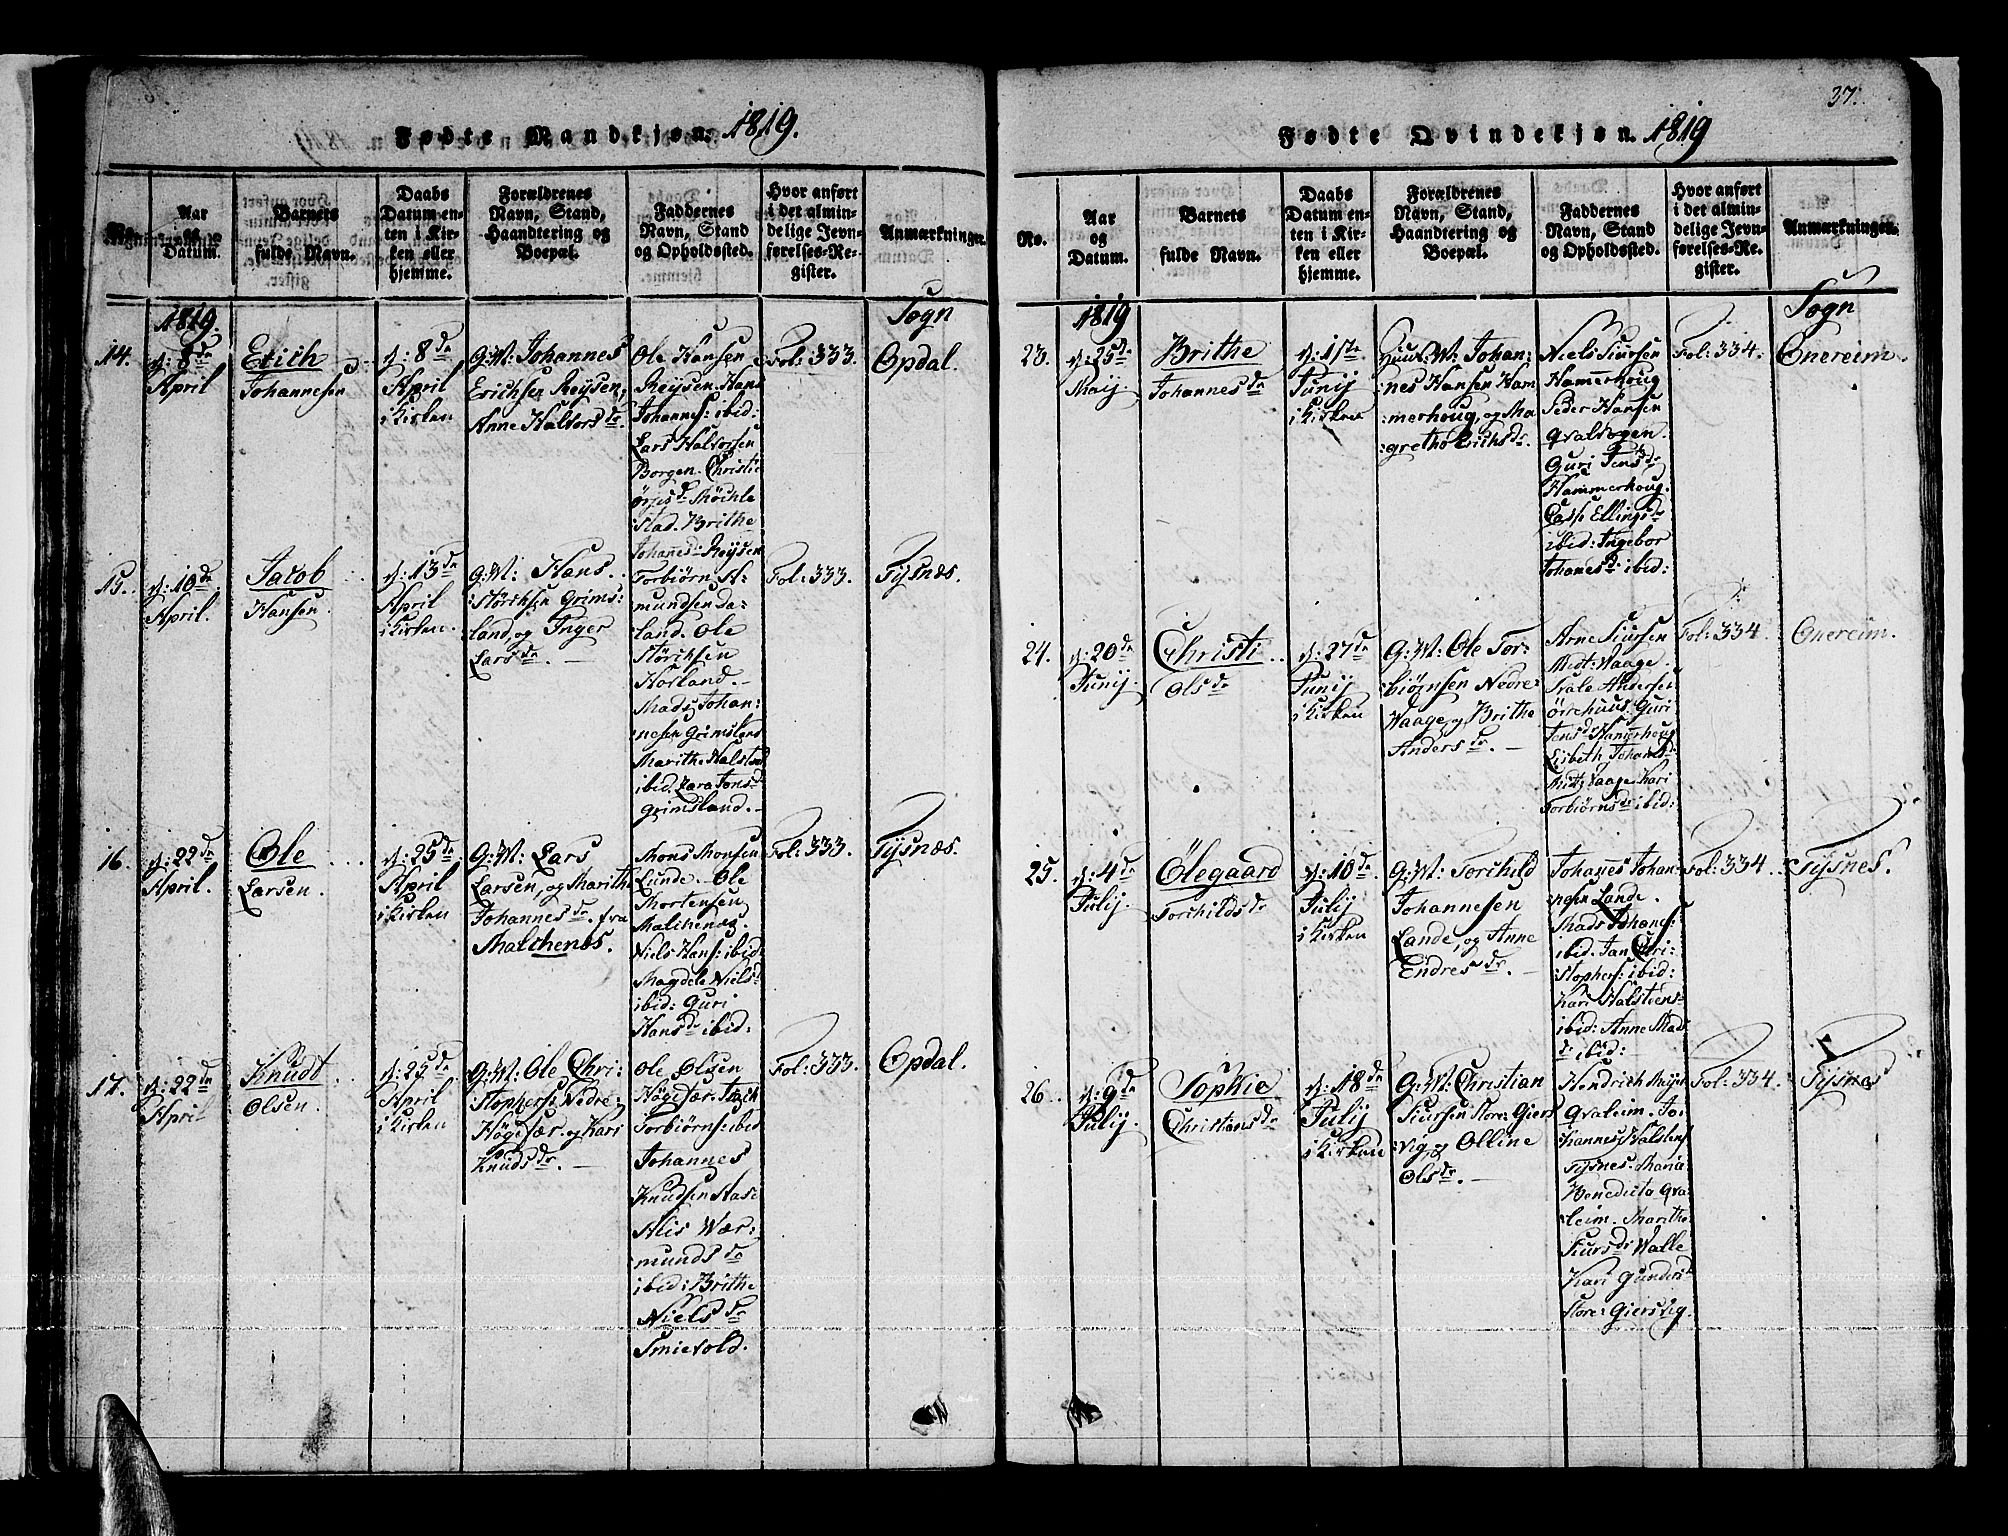 37.
Fødte Mandkjøn. 1819.
No.
Aar
og
Datum.
Barnets
fulde Navn.
Daabs
Datum en-
ten i Kir-
ken eller
hjemme.
Forældrenes
Navn, Stand,
Haandtering og
Boepæl.
Faddernes
Navn, Stand
og Opholdssted.
Hvor anført
i det almin-
delige Jevn-
førelses-Re-
gister.
Anmærkninger.
1819.
Sogn
14.
d: 8de
April
Erich
Johannesen
d: 8de
April
i Kirken
G:M: Johannes
Erichsen Reysen,
Anne Halvorsdr.
Ole Hansen
Reysen. Hans
Johannes: ibid:
Lars Halvorsen
Borgen. Christie
stad. Brithe
Johanes: Reysen
Fol: 333.
Opdal.
15.
d: 10de
April.
Jacob
Hansen.
d: 13de
April
i Kirken.
G:M: Hans
Størchsen Grims:
land, og Inger
Larsdr.
Torbiørn A-
mundsen Da-
land. Ole
Størchsen
Hofland.
Mads Johan:
nesen Grimsland
Marithe Halsted
ibid. Zara Jonsd
Grimsland.
Fol: 333.
Tysnæs.
16.
d: 22de
April.
Ole
Larsen.
d: 25de
April
i Kirken
G:M: Lars
Larsen, og Marithe
Johannesdr. fra
Malchenes.
Mons Monsen
Lunde. Ole
Mortensen
Malchenes.
Niels Hans: ibid:
Magdele Nielsd:
ibid: Guri
Hansdr ibid:
Fol: 333.
Tysnæs.
17.
d: 22de
April
Knudt
Olsen.
d: 25de
April
i Kirken
G:M: Ole Chri:
stophers: Nedre:
Høgesær. og Kari
Knudsdr.
Ole Olsen
Høgesær.
Torbiørns: ibid
Johannes
Knudsen
Alis Wær:
mundsdr
ibid: Brithe
Nielsdr
Smievold.
Fol: 333.
Opdal.
Fødte Qvindekjøn. 1819
No.
Aar
og
Datum.
Barnets
fulde Navn.
Daabs
Datum en-
ten i Kir-
ken eller
hjemme.
Forældrenes
Navn, Stand,
Haandtering og
Boepæl.
Faddernes
Navn, Stand
og Opholdssted.
Hvor anført
i det almin-
delige Jevn-
førelses-Re-
gister.
Anmærkninger.
1819
Sogn
23.
d: 25de
Maij.
Brithe
Johannesdr
d: 1ste
Junij
i Kirken
Huus M: Johan:
:nes Hansen Ham
:merhoug, og Ma
:grethe Erichsdr.
Niels Siursen
Hammerhoug
Peder Hansen
Qvalvogen.
Guri Jensdr
Hammerhoug.
Ellingsdr
ibid: Ingebor
Johanesdr ibid:
Fol: 334.
Onereim.
24.
d: 20de
Junij.
Christi
Olsdr
d: 27de
Junij
i Kirken
G:M: Ole Tor:
:biørnsen Nedre:
Waage, og Brithe
Andersdr.
Arne Siursen
Midt: Vaage.
Andersen
Guri
Jensd: Hammerhoug
Lisbeth Johanesd:
Midt: Vaage. Kari
Torbiørnsdr ibid:
Fol: 334.
Onereim.
25.
d: 4de
Julij.
Ølegaard
Torchildsdr
d: 10de
Julij
i Kirken
G:M: Torchild
Johannesen
Lande, og Anne
Endresdr.
Johannes Johan
:nesen Lande.
Mads Johanes:
ibid. Jan Chri:
:stophers: ibid:
Kari Halsteens:
ibid: Anne Mads
dr ibid:
Fol: 334
Tysnes.
26.
d: 9de
Julij.
Sophie
Christansdr
d: 18de
Julij
i Kirken
G:M: Christian
Siursen Store: Giers
:vig, og Olline
Olsdr.
Hendrich
Qvaleim. Jo:
hannes Halstens
Tysnes. Maria
Benedicta Qva:
leim. Marithe
Siursdr Walle
Kari Gundersd
Store: Giersvig.
Fol: 334.
Tysnes